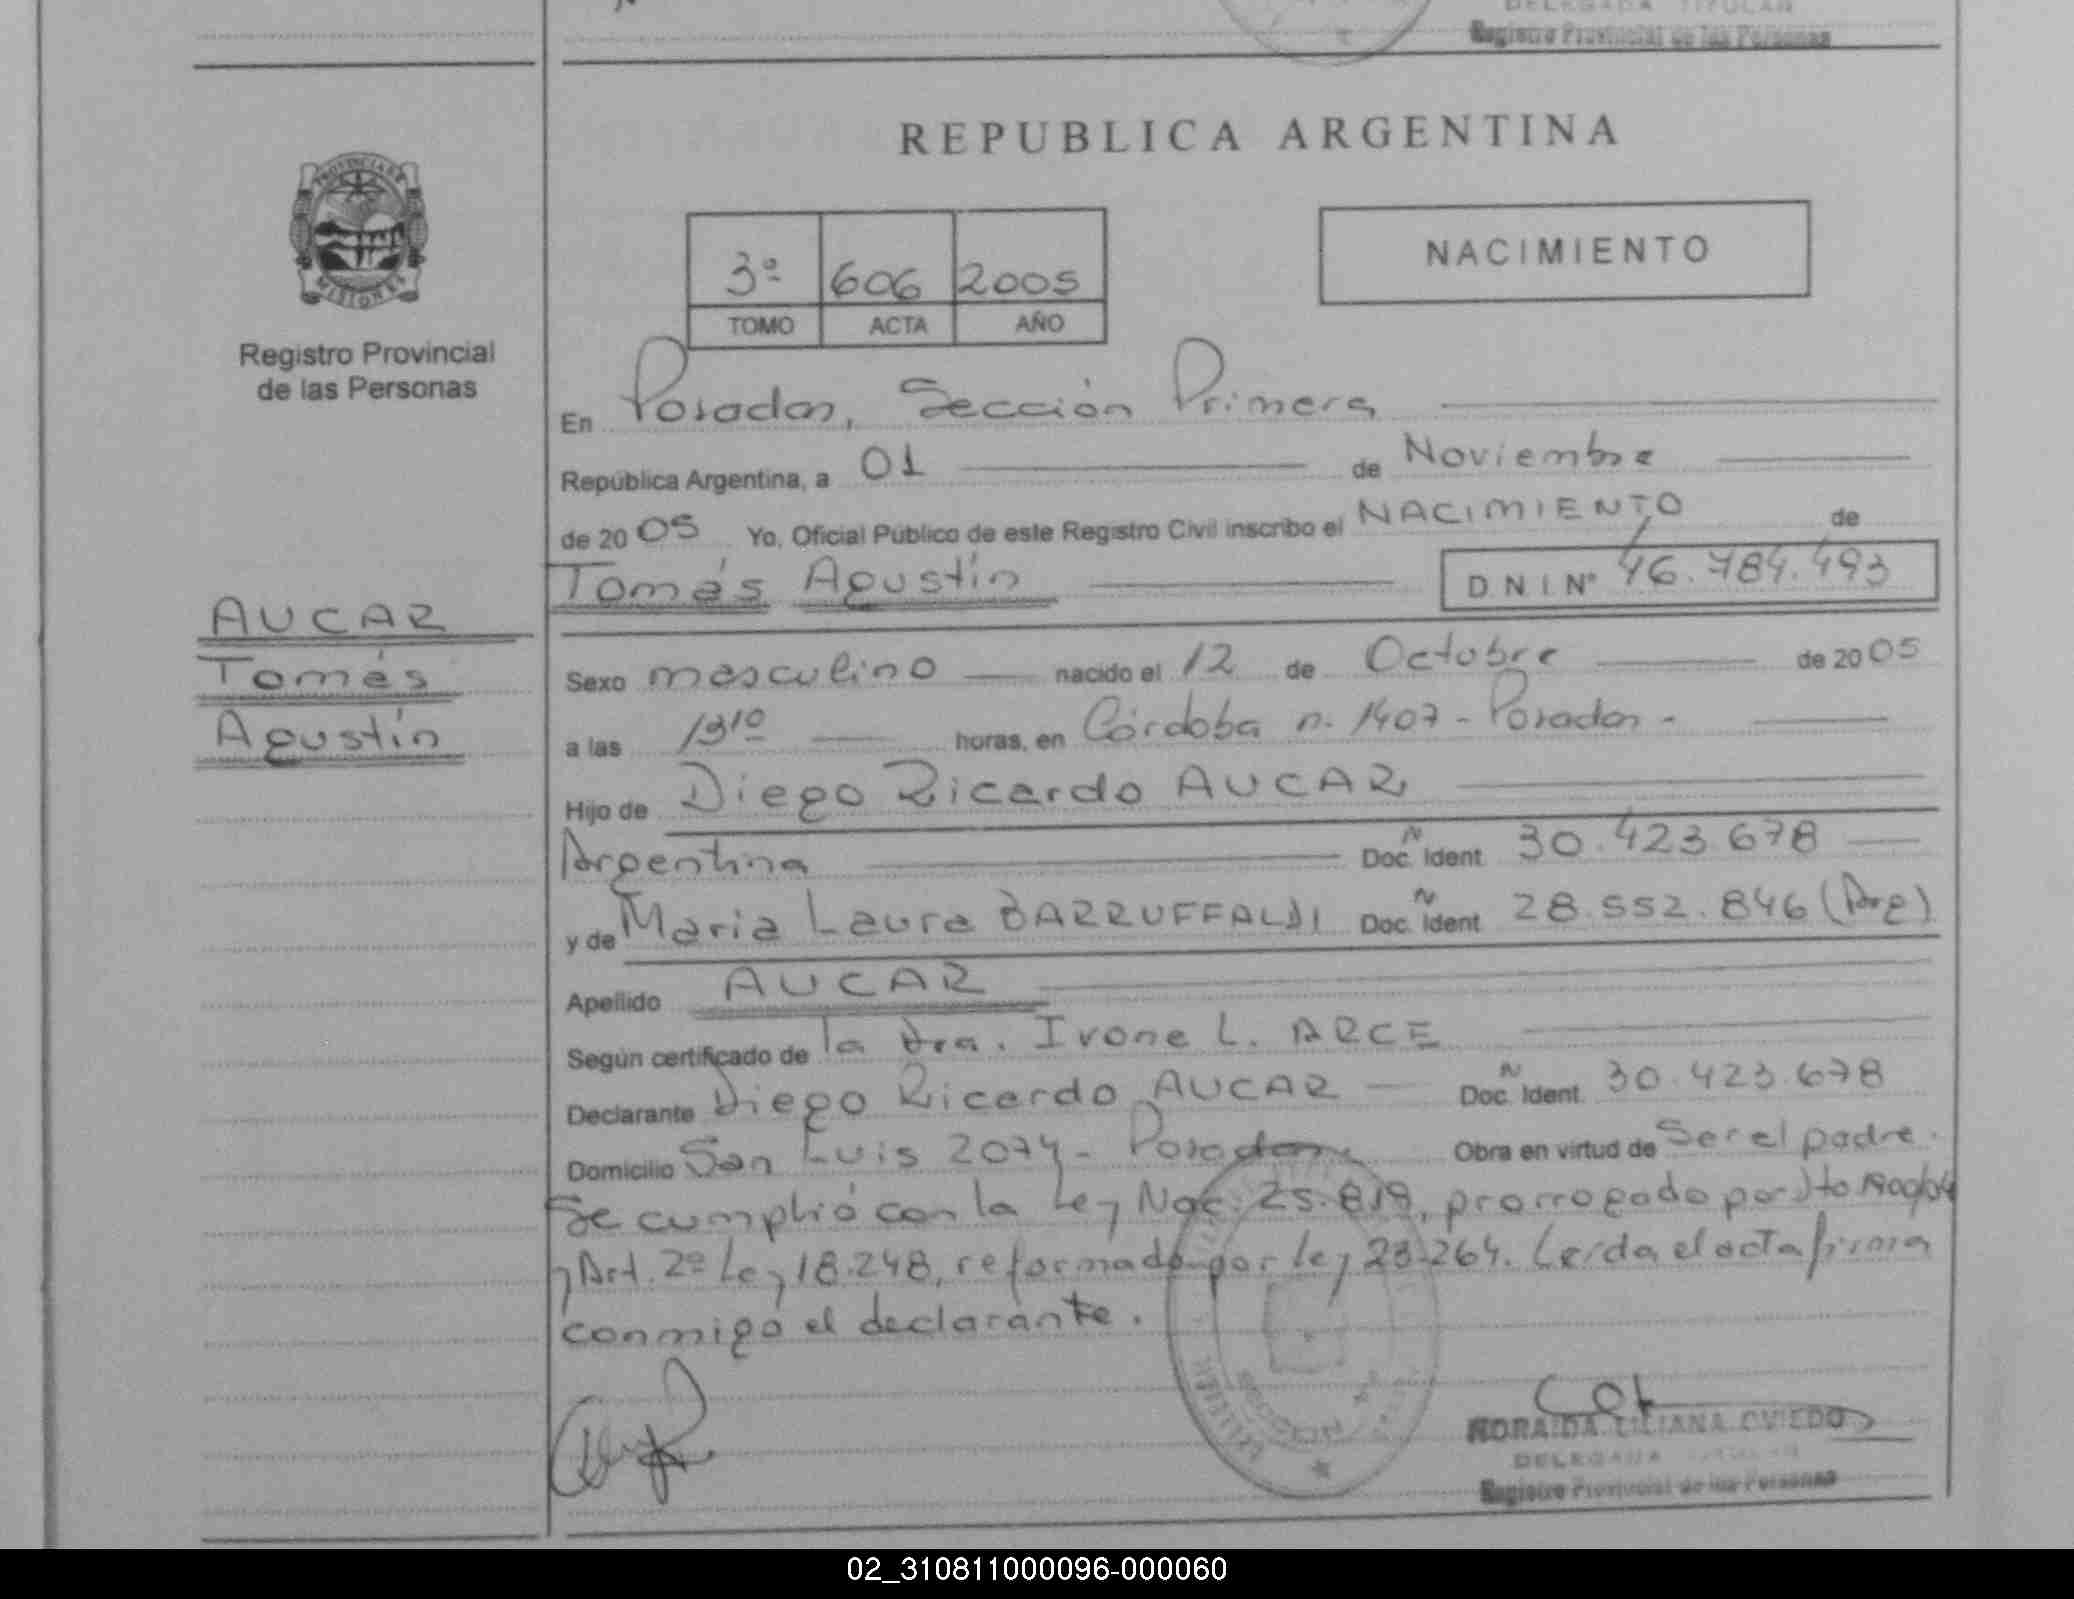 DELEGADA TITULAR
Registro Provincial de las Personas
REPUBLICA ARGENTINA
PROVINCIA DE
MISIONES
Registro Provincial
de las Personas
3º 606 2005
TOMO ACTA AÑO
NACIMIENTO
En Posadas, Sección Primera
República Argentina, a 01 de Noviembre
de 2005 Yo, Oficial Público de este Registro Civil inscribo el NACIMIENTO de
Tomás Agustín D N I Nº 46.784.493
AUCAR
Tomás
Agustín
Sexo masculino nacido el 12 de Octubre de 2005
a las 13¹⁰ horas, en Córdoba n. 1407 - Posadas -
Hijo de Diego Ricardo AUCAR
Argentina Doc. N Ident 30.423.678
y de Maria Laura BARRUFFALDI Doc. N Ident 28.552.846 (Arg)
Apellido AUCAR
Según certificado de la Dra. Ivone L. ARCE
Declarante Diego Ricardo AUCAR Doc. N Ident. 30.423.678
Domicilio San Luis 2074 - Posadas Obra en virtud de Ser el padre.
Se cumplió con la Ley Nac. 25.819, prorrogado por Dto 1900/04
y Art. 2º Ley 18.248, reformado por ley 23.264. Leída el acta firma
conmigo el declarante.
NORAIDA LILIANA OVIEDO
DELEGADA TITULAR
Registro Provincial de las Personas
02_310811000096-000060